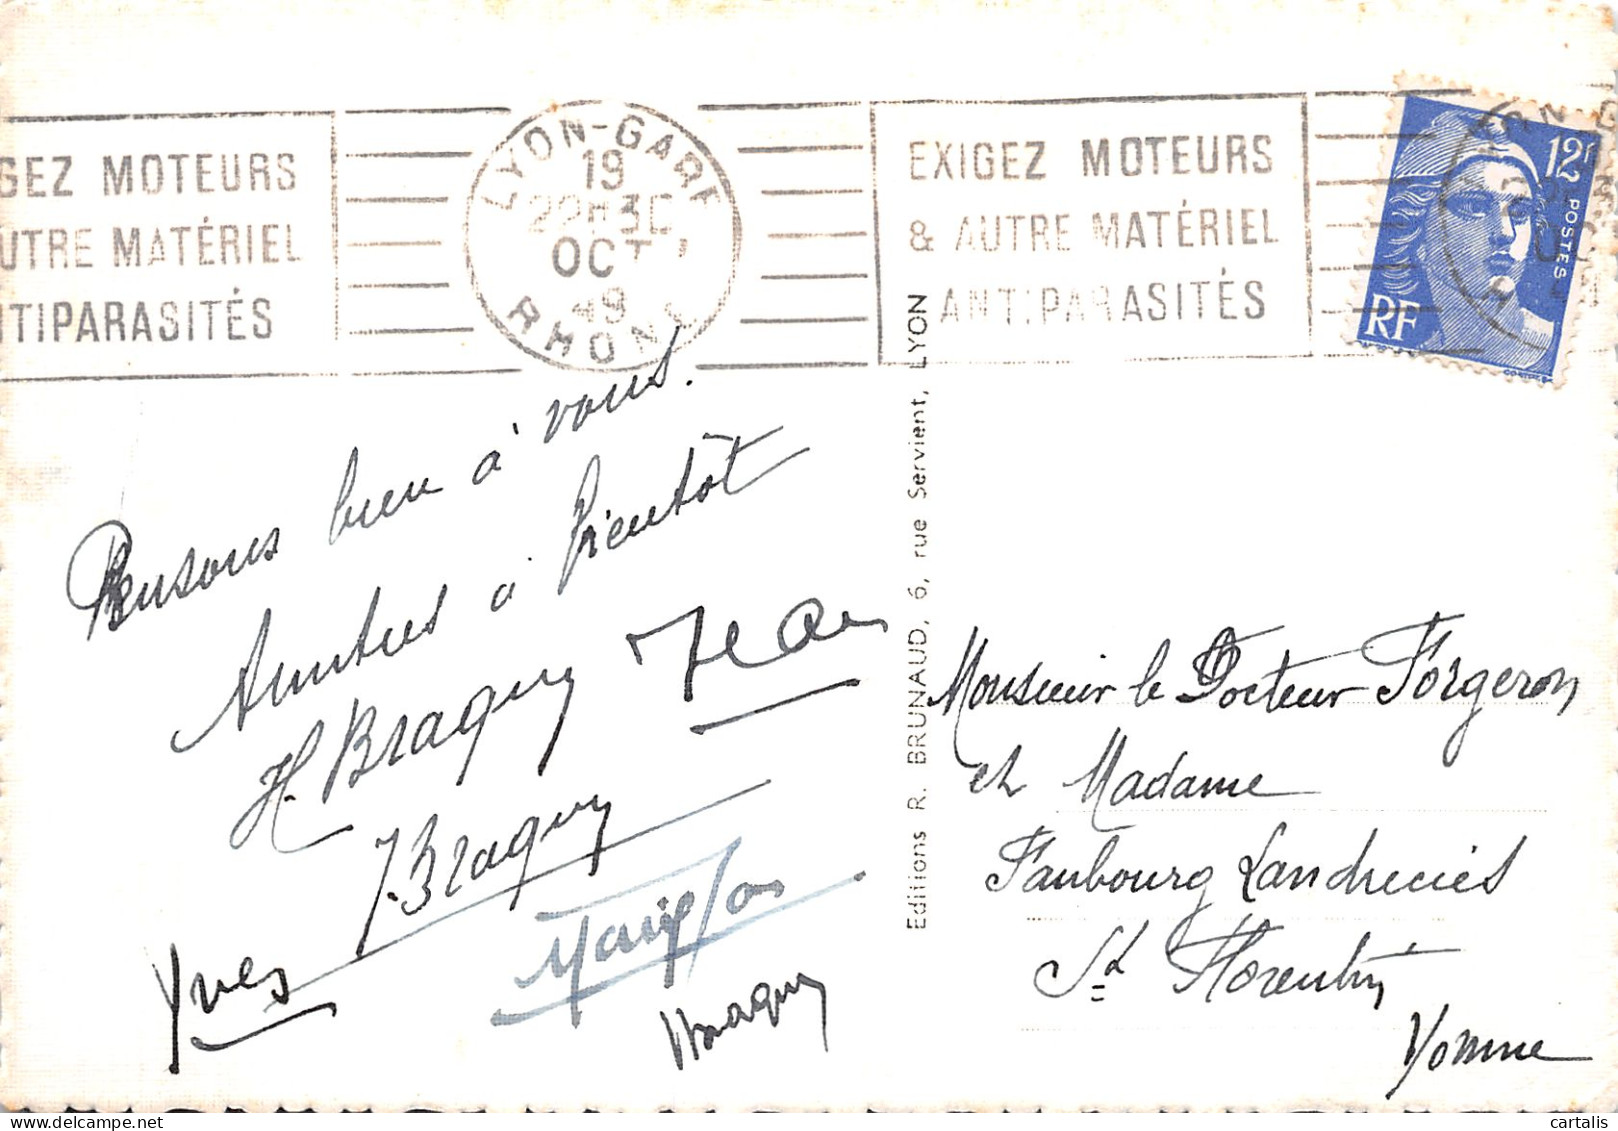 GEZ MOTEURS
UTRE MATÉRIEL
NTIPARASITÉS
LYON-GARE
19
22H30
OCT
49
RHONE
EXIGEZ MOTEURS
& AUTRE MATÉRIEL
ANTIPARASITÉS
12F
POSTES
RF
Pensons bien à vous.
Amitiés à bientôt
H. Braguy Jean
J. Braguy
Yves
Braguy
Editions R. BRUNAUD, 6, rue Servient, LYON
Monsieur le Docteur Forgeron
et Madame
Faubourg Landrecies
St Florentin
Yonne
cartalis